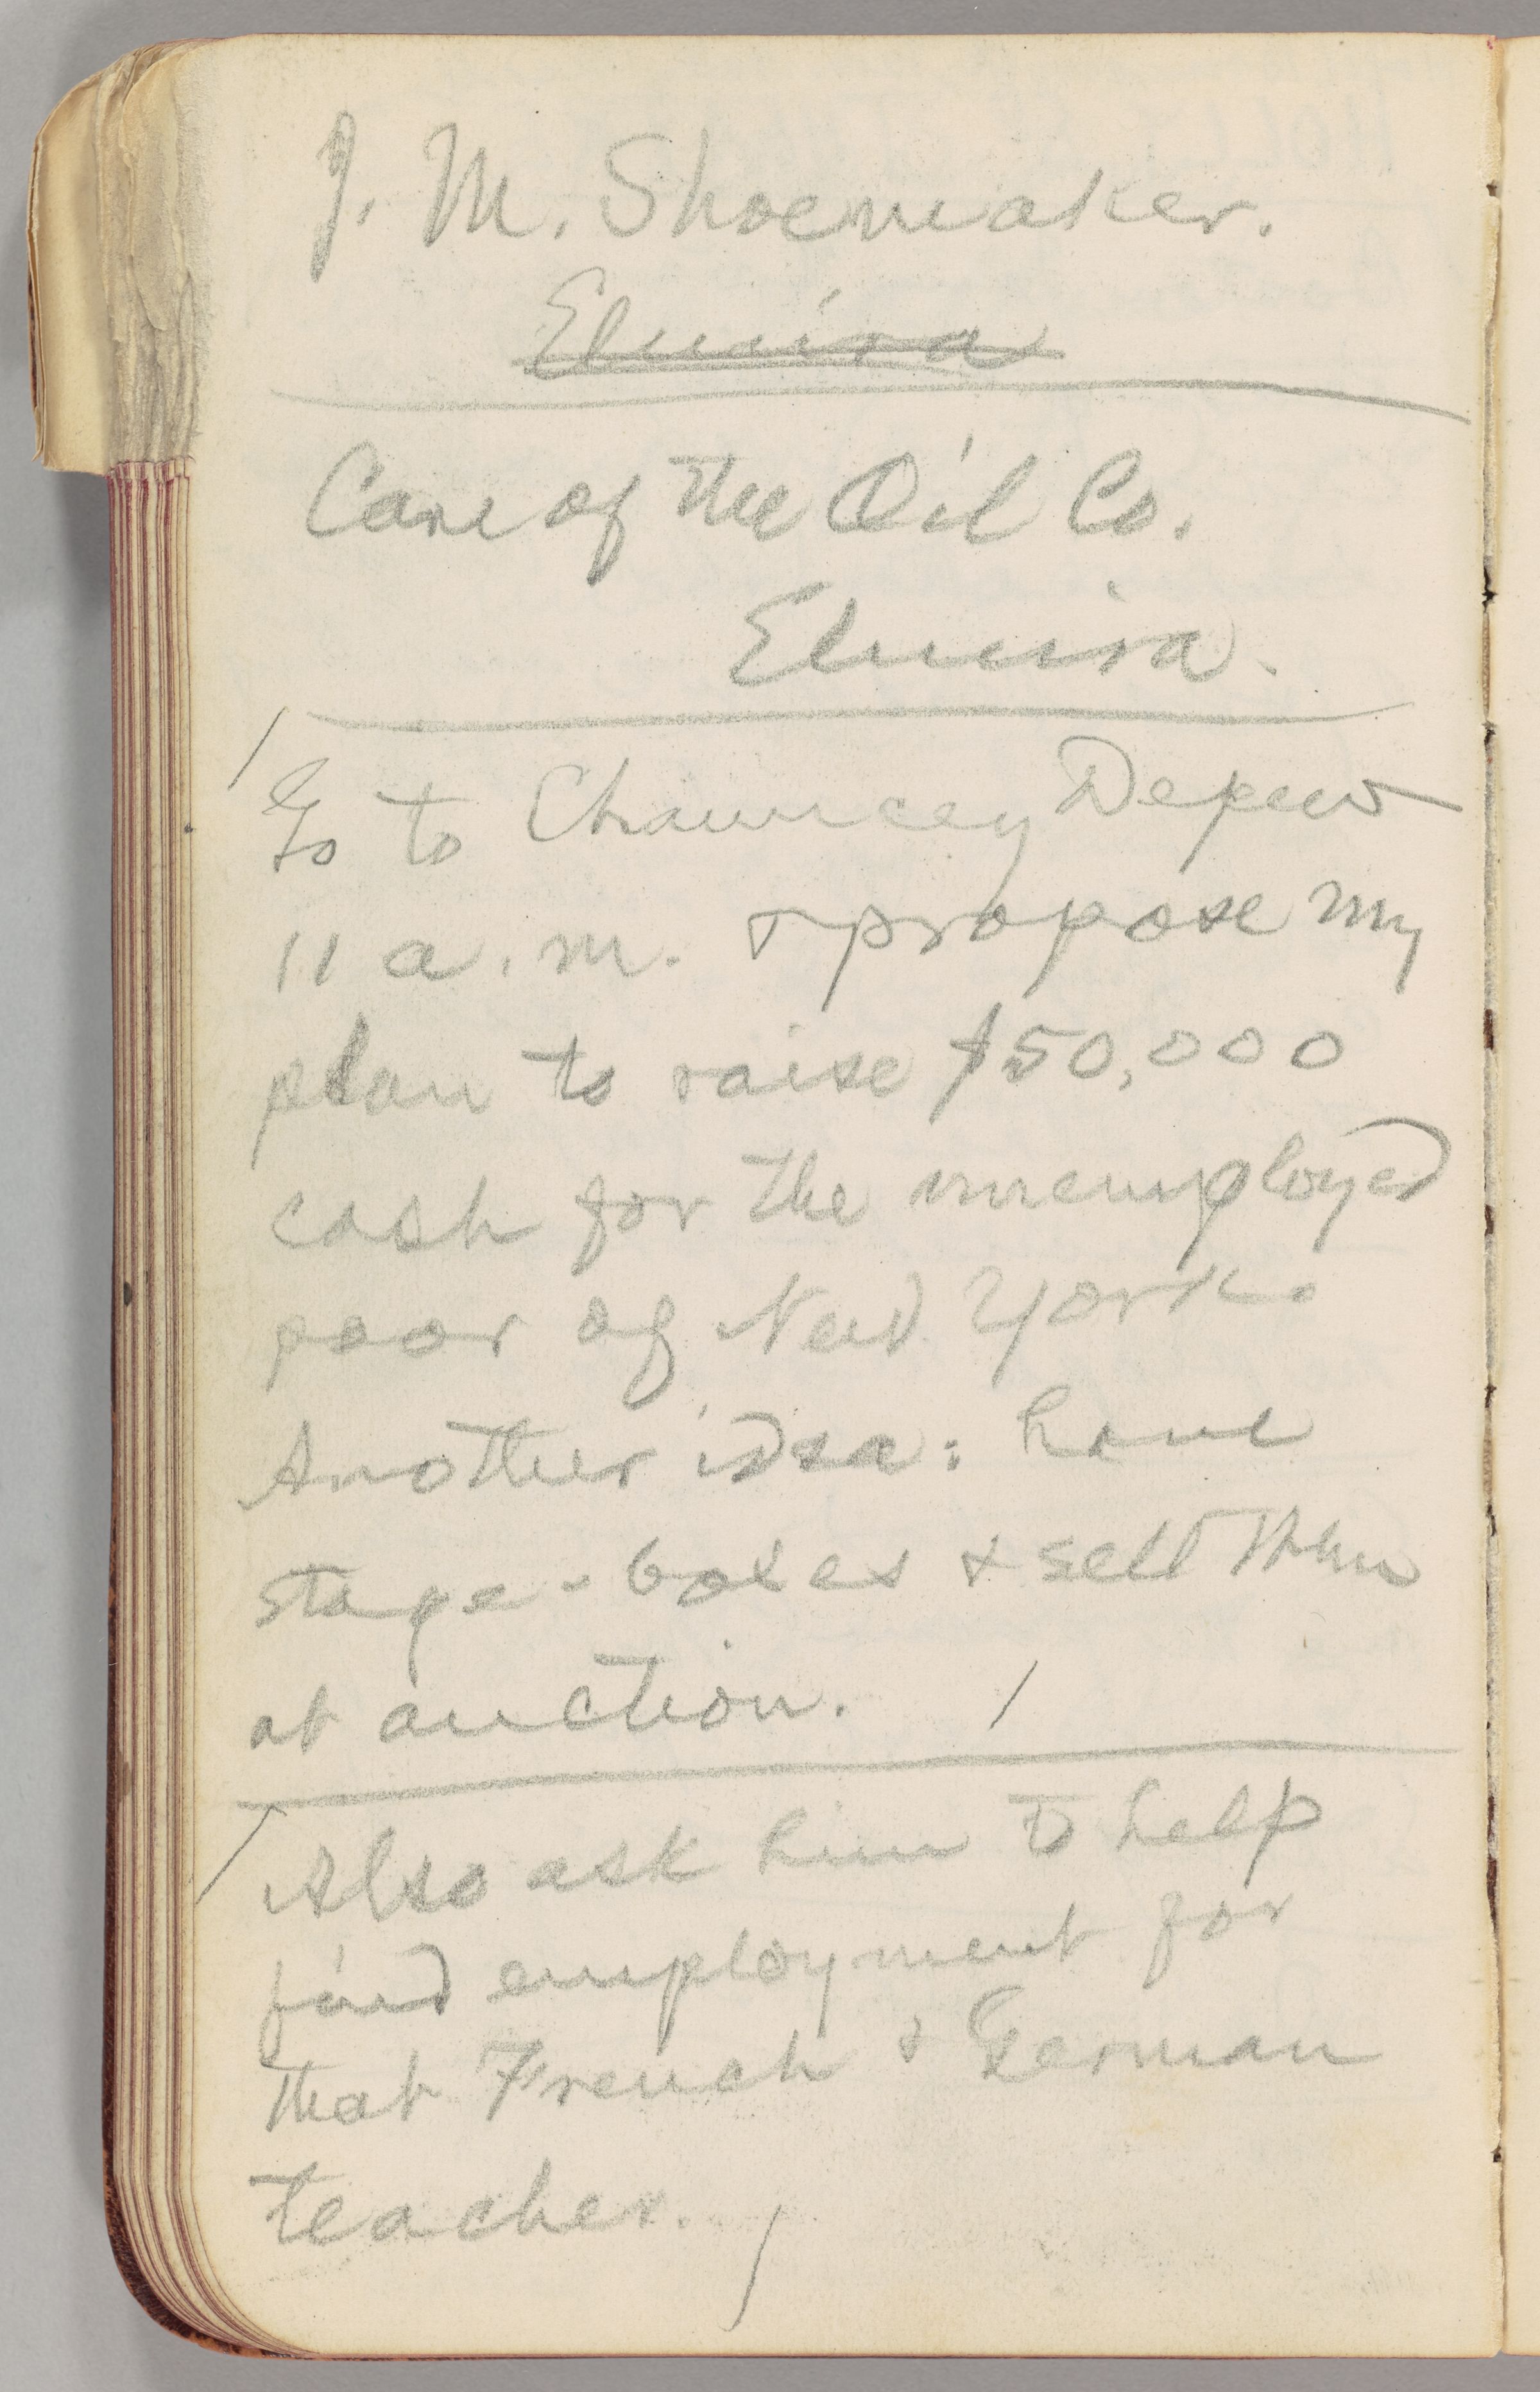 J. M. Shoemaker.
Elmira
Care of the Oil Co.
Elmira.
Go to Chauncey Depew
11 a.m. & propose my
plan to raise $50,000
cash for the unemployed
poor of New York.
Another idea: have
stage-boxes & sell them
at auction. /
Also ask him to help
find employment for
that French & German
teacher. /